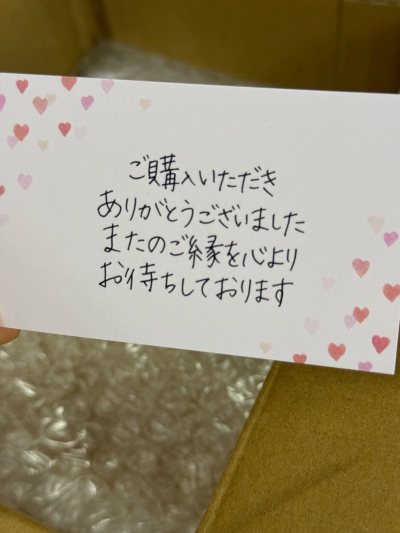 ご購入いただき
ありがとうございました
またのご縁を心より
お待ちしております